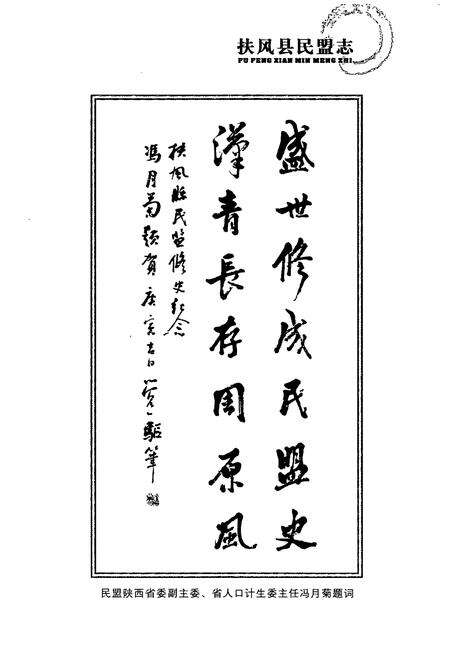 扶风县民盟志
FU FENG XIAN MIN MENG ZHI
盛世修成民盟史
漢青長存周原風
扶風縣民盟修史纪念
馮月菊题贺 吉日 驅筆
民盟陕西省委副主委、省人口计生委主任冯月菊题词